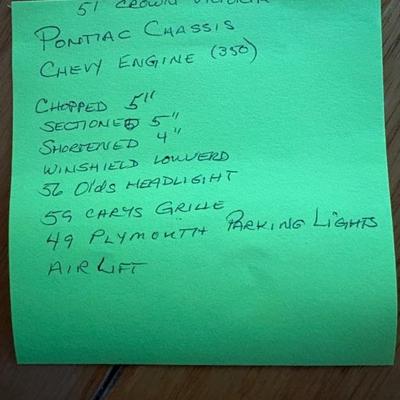 51 CROWN VICTORIA
PONTIAC CHASSIS
CHEVY ENGINE (350)
CHOPPED 5"
SECTIONED 5"
SHORTENED 4"
WINSHIELD LOWVERD
56 Olds HEADLIGIHT
59 CARYS GRILLE
49 PLYMOUTH PARKING LIGHTS
AIR LIFT